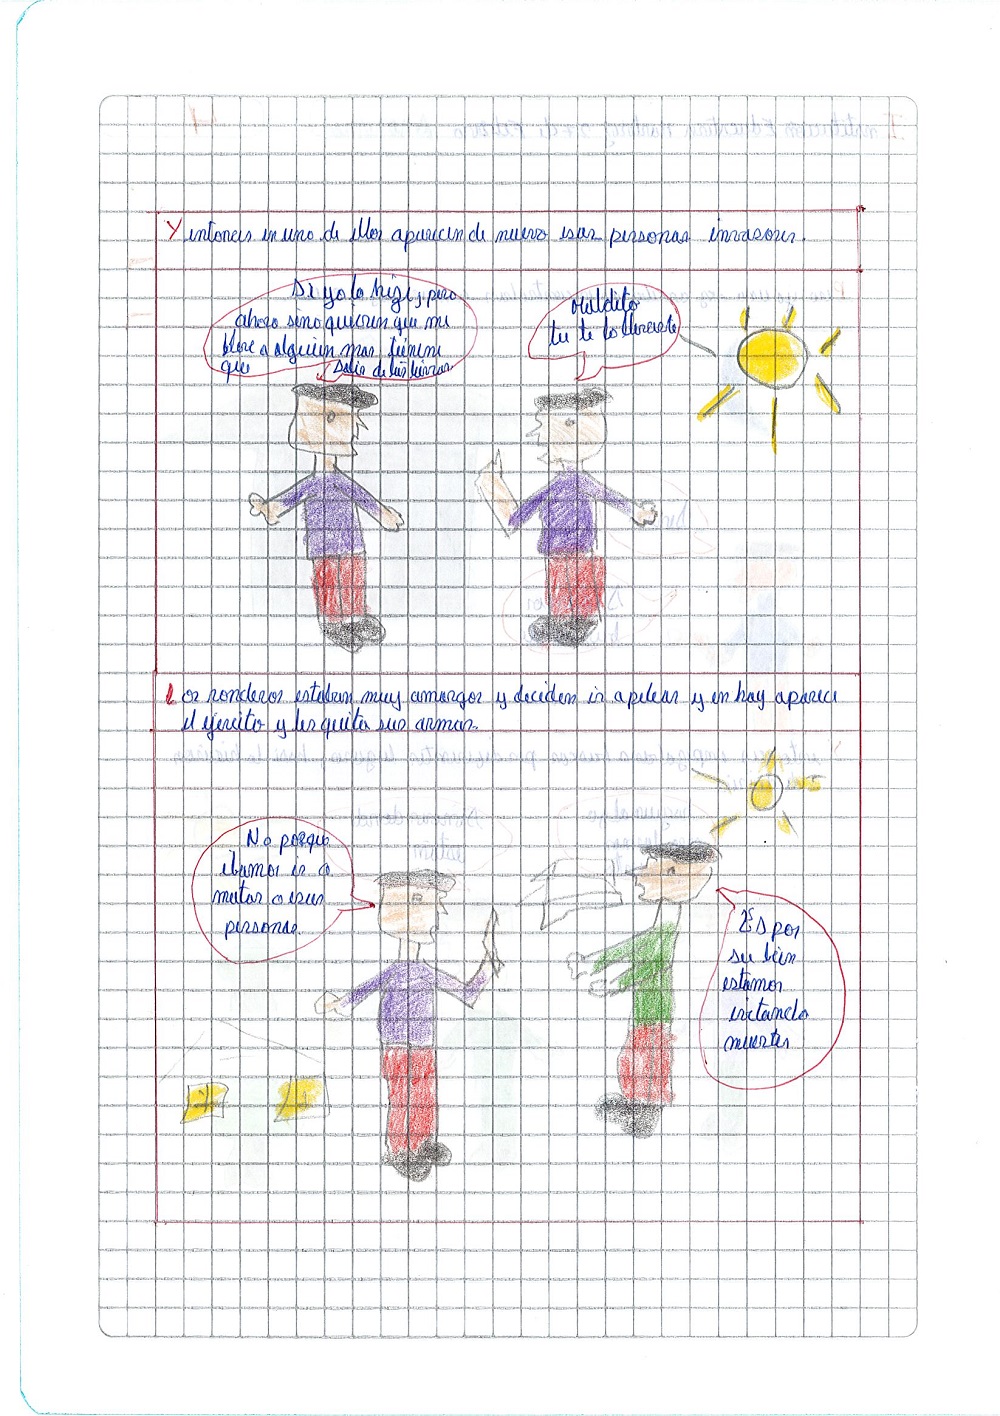 Y entonces en uno de ellos aparecen de nuevo esas personas invasores.
Si yo lo hize, pero
ahora sino quieren que me
lleve a alguien mas tienen
que salir de las tierras
Maldito
tu te lo llevaste
Los ronderos estaban muy amargos y deciden ir a pelear y en hay aparece
el ejercito y les quita sus armas.
No porque
ibamos ir a
matar a esas
personas.
Es por
su bien
estamos
evitando
muertes